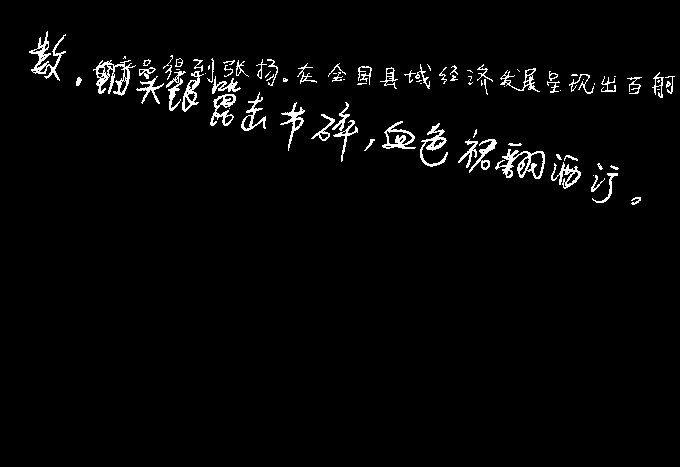 数.钿头银篦击节碎,血色裙翻酒污。
得到张扬.在全国县域经济发展呈现出百舸